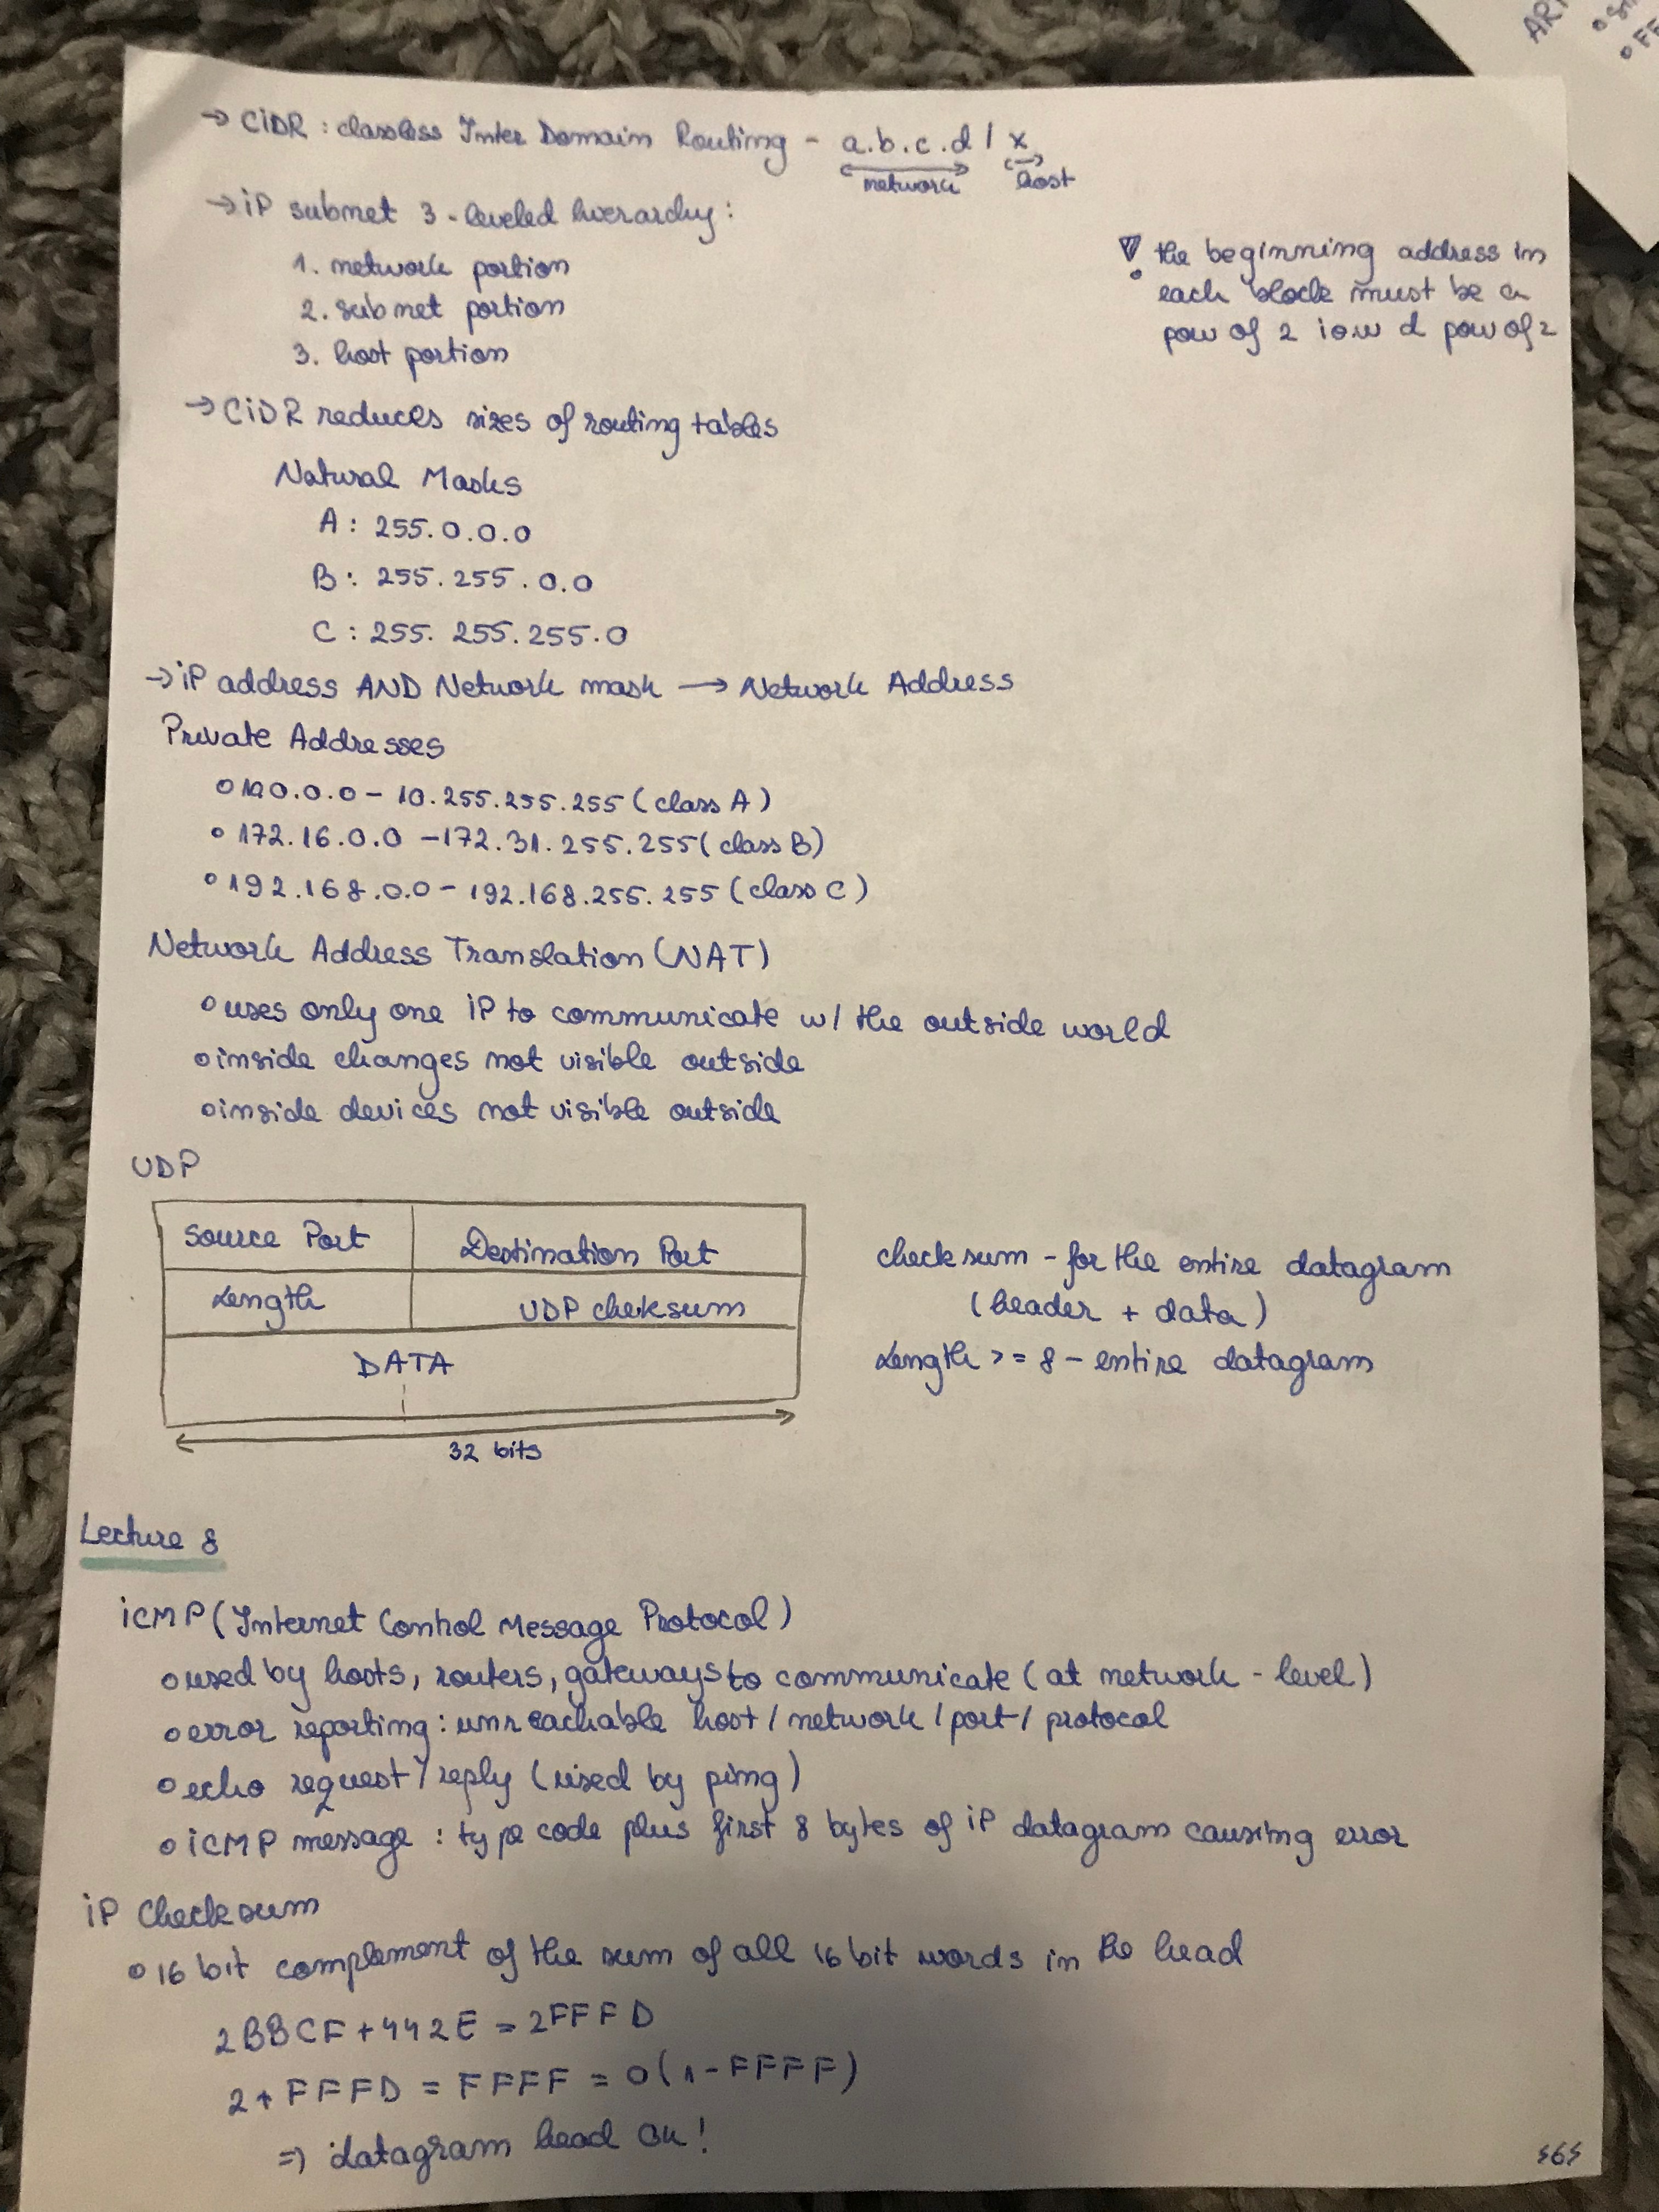 → CiDR : classless Inter Domain Routing - a.b.c.d / x
network host
→ iP subnet 3-leveled hierarchy:
1. network portion
2. subnet portion
3. host portion
the beginning address in
each block must be a
pow of 2 iow d pow of 2
→ CiDR reduces sizes of routing tables
Natural Masks
A : 255.0.0.0
B : 255.255.0.0
C : 255.255.255.0
→ iP address AND Network mask → Network Address
Private Addresses
o 10.0.0.0 - 10.255.255.255 (class A)
o 172.16.0.0 - 172.31.255.255 (class B)
o 192.168.0.0 - 192.168.255.255 (class C)
Network Address Translation (NAT)
o uses only one iP to communicate w/ the outside world
o inside changes not visible outside
o inside devices not visible outside
UDP
Source Port Destination Port
Length UDP cheksum
DATA
32 bits
checksum - for the entire datagram
(header + data)
Length >= 8 - entire datagram
Lecture 8
iCMP (Internet Control Message Protocol)
o used by hosts, routers, gateways to communicate (at network-level)
o error reporting : unreachable host / network / port / protocol
o echo request / reply (used by ping)
o iCMP message : type code plus first 8 bytes of iP datagram causing error
iP Checksum
o 16 bit complement of the sum of all 16 bit words in the head
2BBCF + 442E = 2FFFD
2 + FFFD = FFFF = 0 (1 - FFFF)
=> datagram head OK!
ART